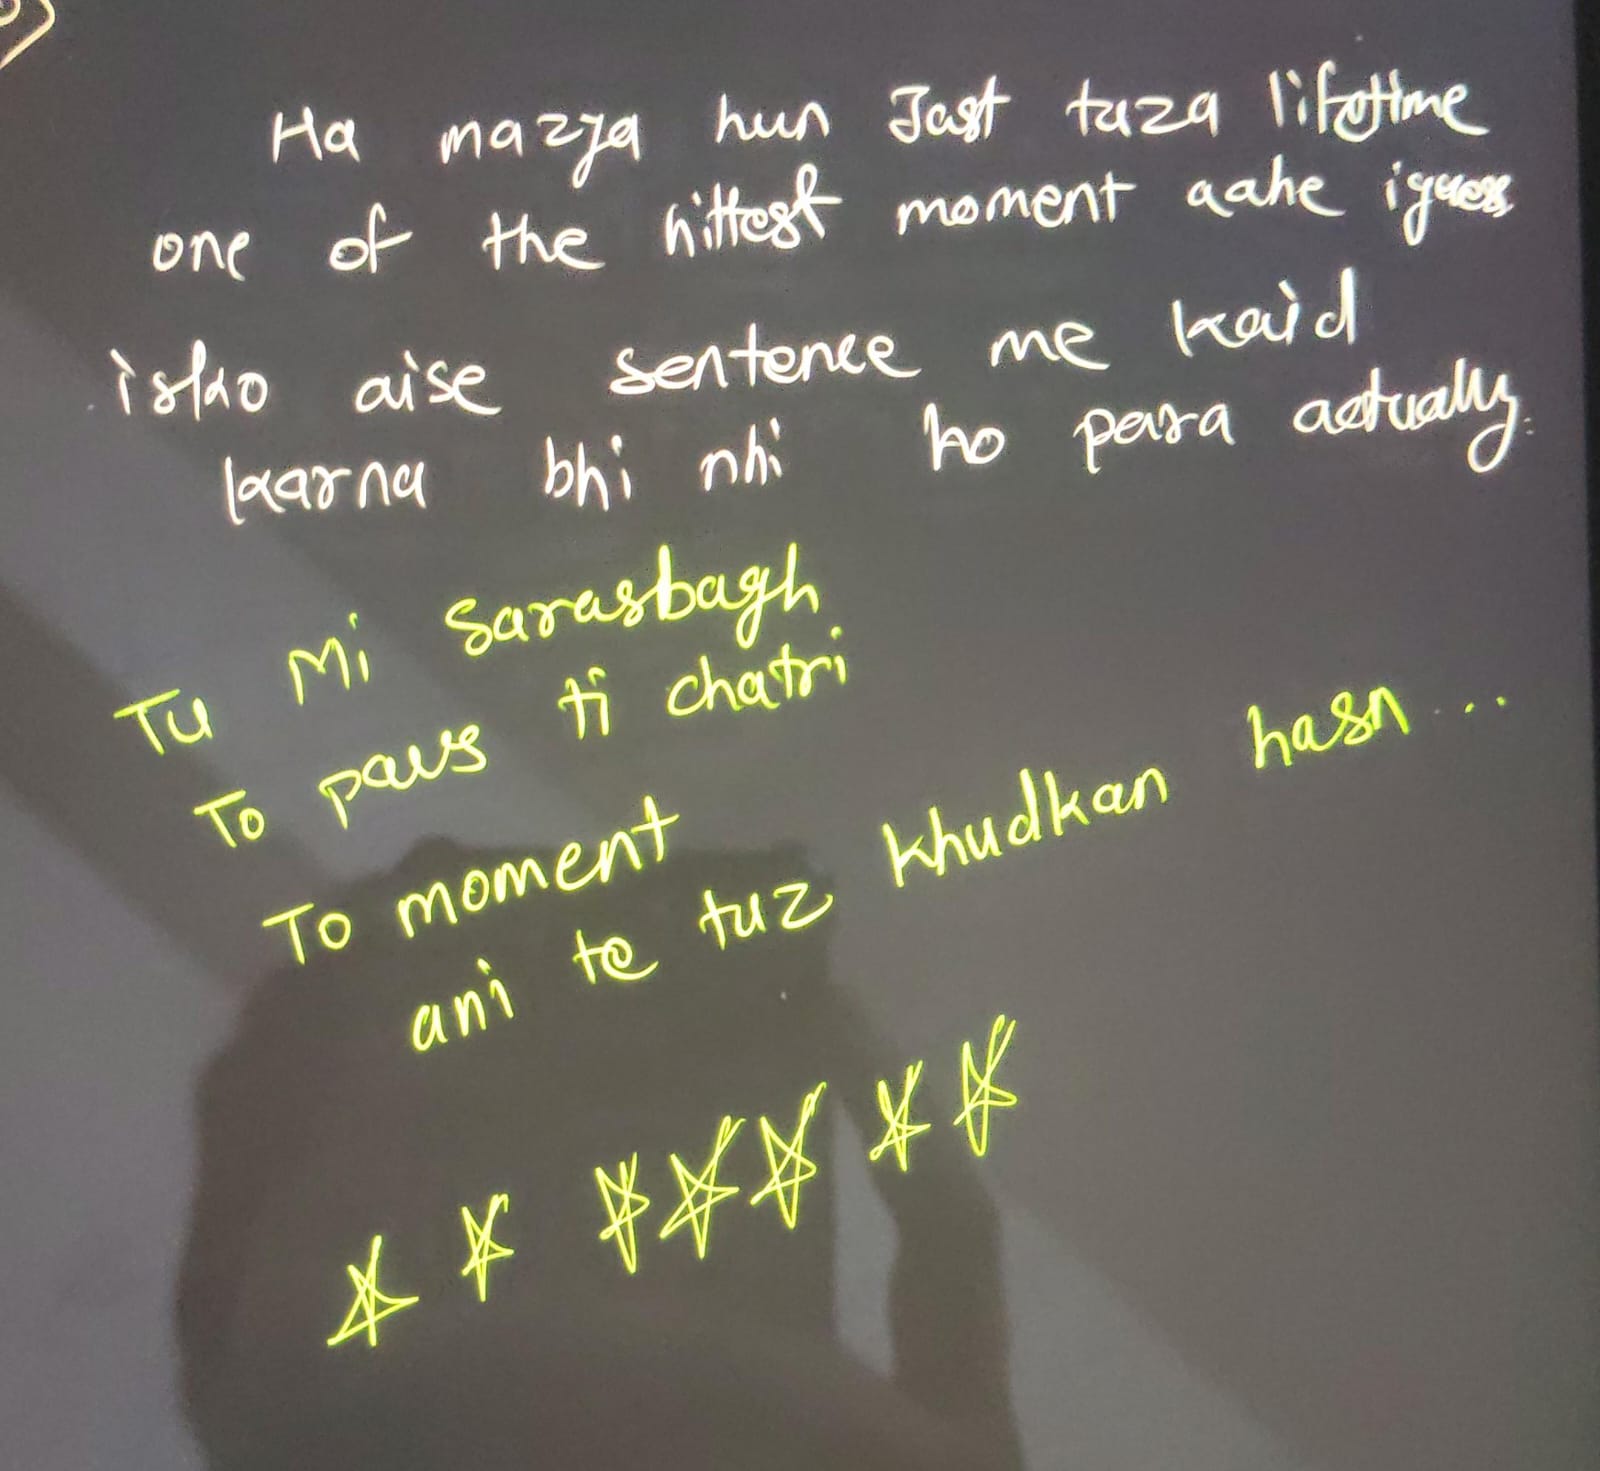 Ha mazya hun Jast tuza lifetime
one of the hittest moment aahe iguess
isko aise sentence me kaid
karna bhi nhi ho para actually.
Tu Mi Sarasbagh
To paus ti chatri
To moment
ani te tuz khudkan hasn ...